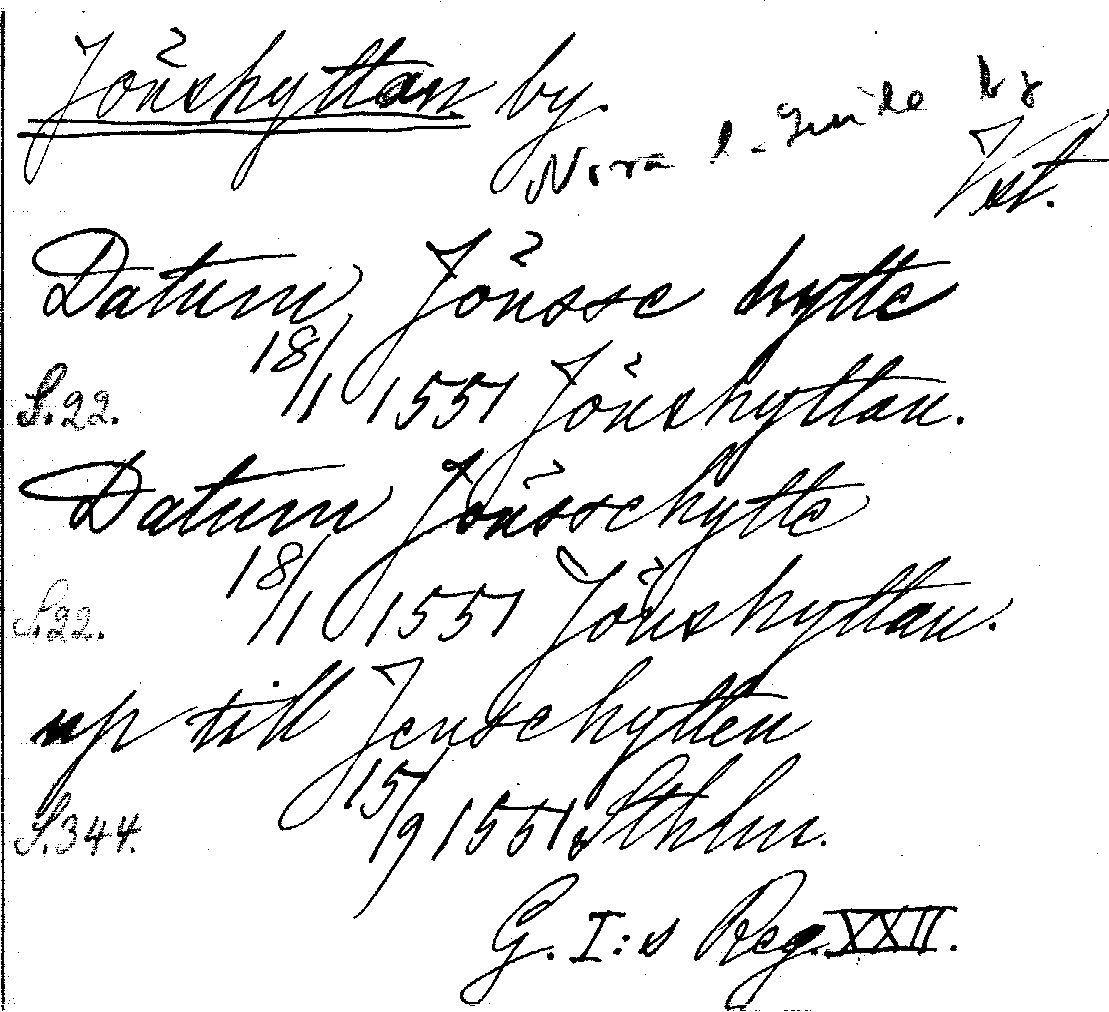 Jönshyttan by.
Nora l. hd
Vst.
Datum Jönsse hytte
S.22. 18/1 1551 Jönshyttan.
Datum Jönssehytte
S.22. 18/1 1551 Jönshyttan.
up till Jensehytten
S.344. 15/9 1551. Sthlm.
G. I:s Reg. XXII.